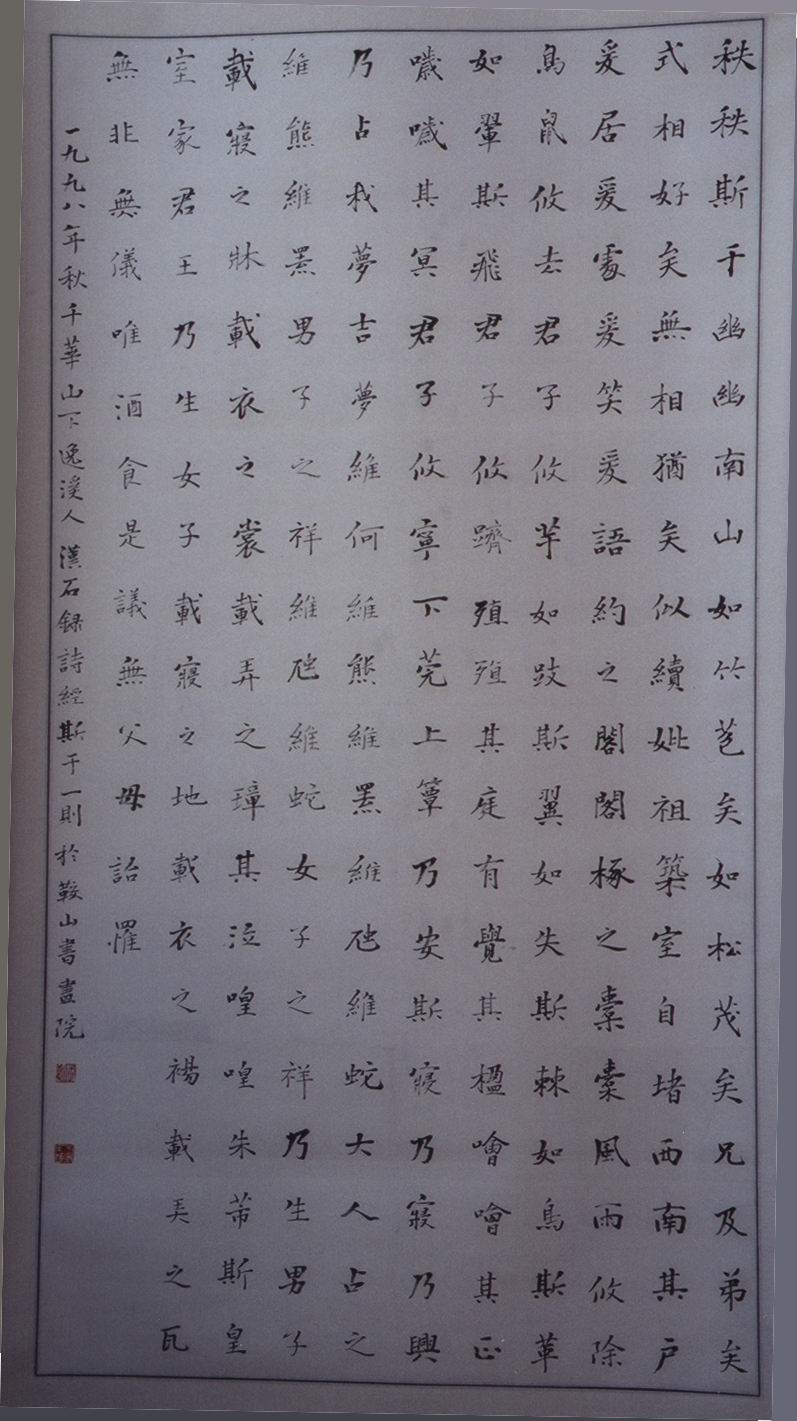 秩秩斯干幽幽南山如竹苞矣如松茂矣兄及弟矣
式相好矣無相猶矣似續妣祖築室自堵西南其戶
爰居爰處爰笑爰語約之閣閣椓之橐橐風雨攸除
鳥鼠攸去君子攸芋如跂斯翼如矢斯棘如鳥斯革
如翬斯飛君子攸躋殖殖其庭有覺其楹噲噲其正
噦噦其冥君子攸寧下莞上簟乃安斯寢乃寢乃興
乃占我夢吉夢維何維熊維羆維虺維蛇大人占之
維熊維羆男子之祥維虺維蛇女子之祥乃生男子
載寢之牀載衣之裳載弄之璋其泣喤喤朱芾斯皇
室家君王乃生女子載寢之地載衣之裼載弄之瓦
無非無儀唯酒食是議無父母詒罹
一九九八年秋千華山下逸溪人漢石録詩經斯干一則於鞍山書畫院